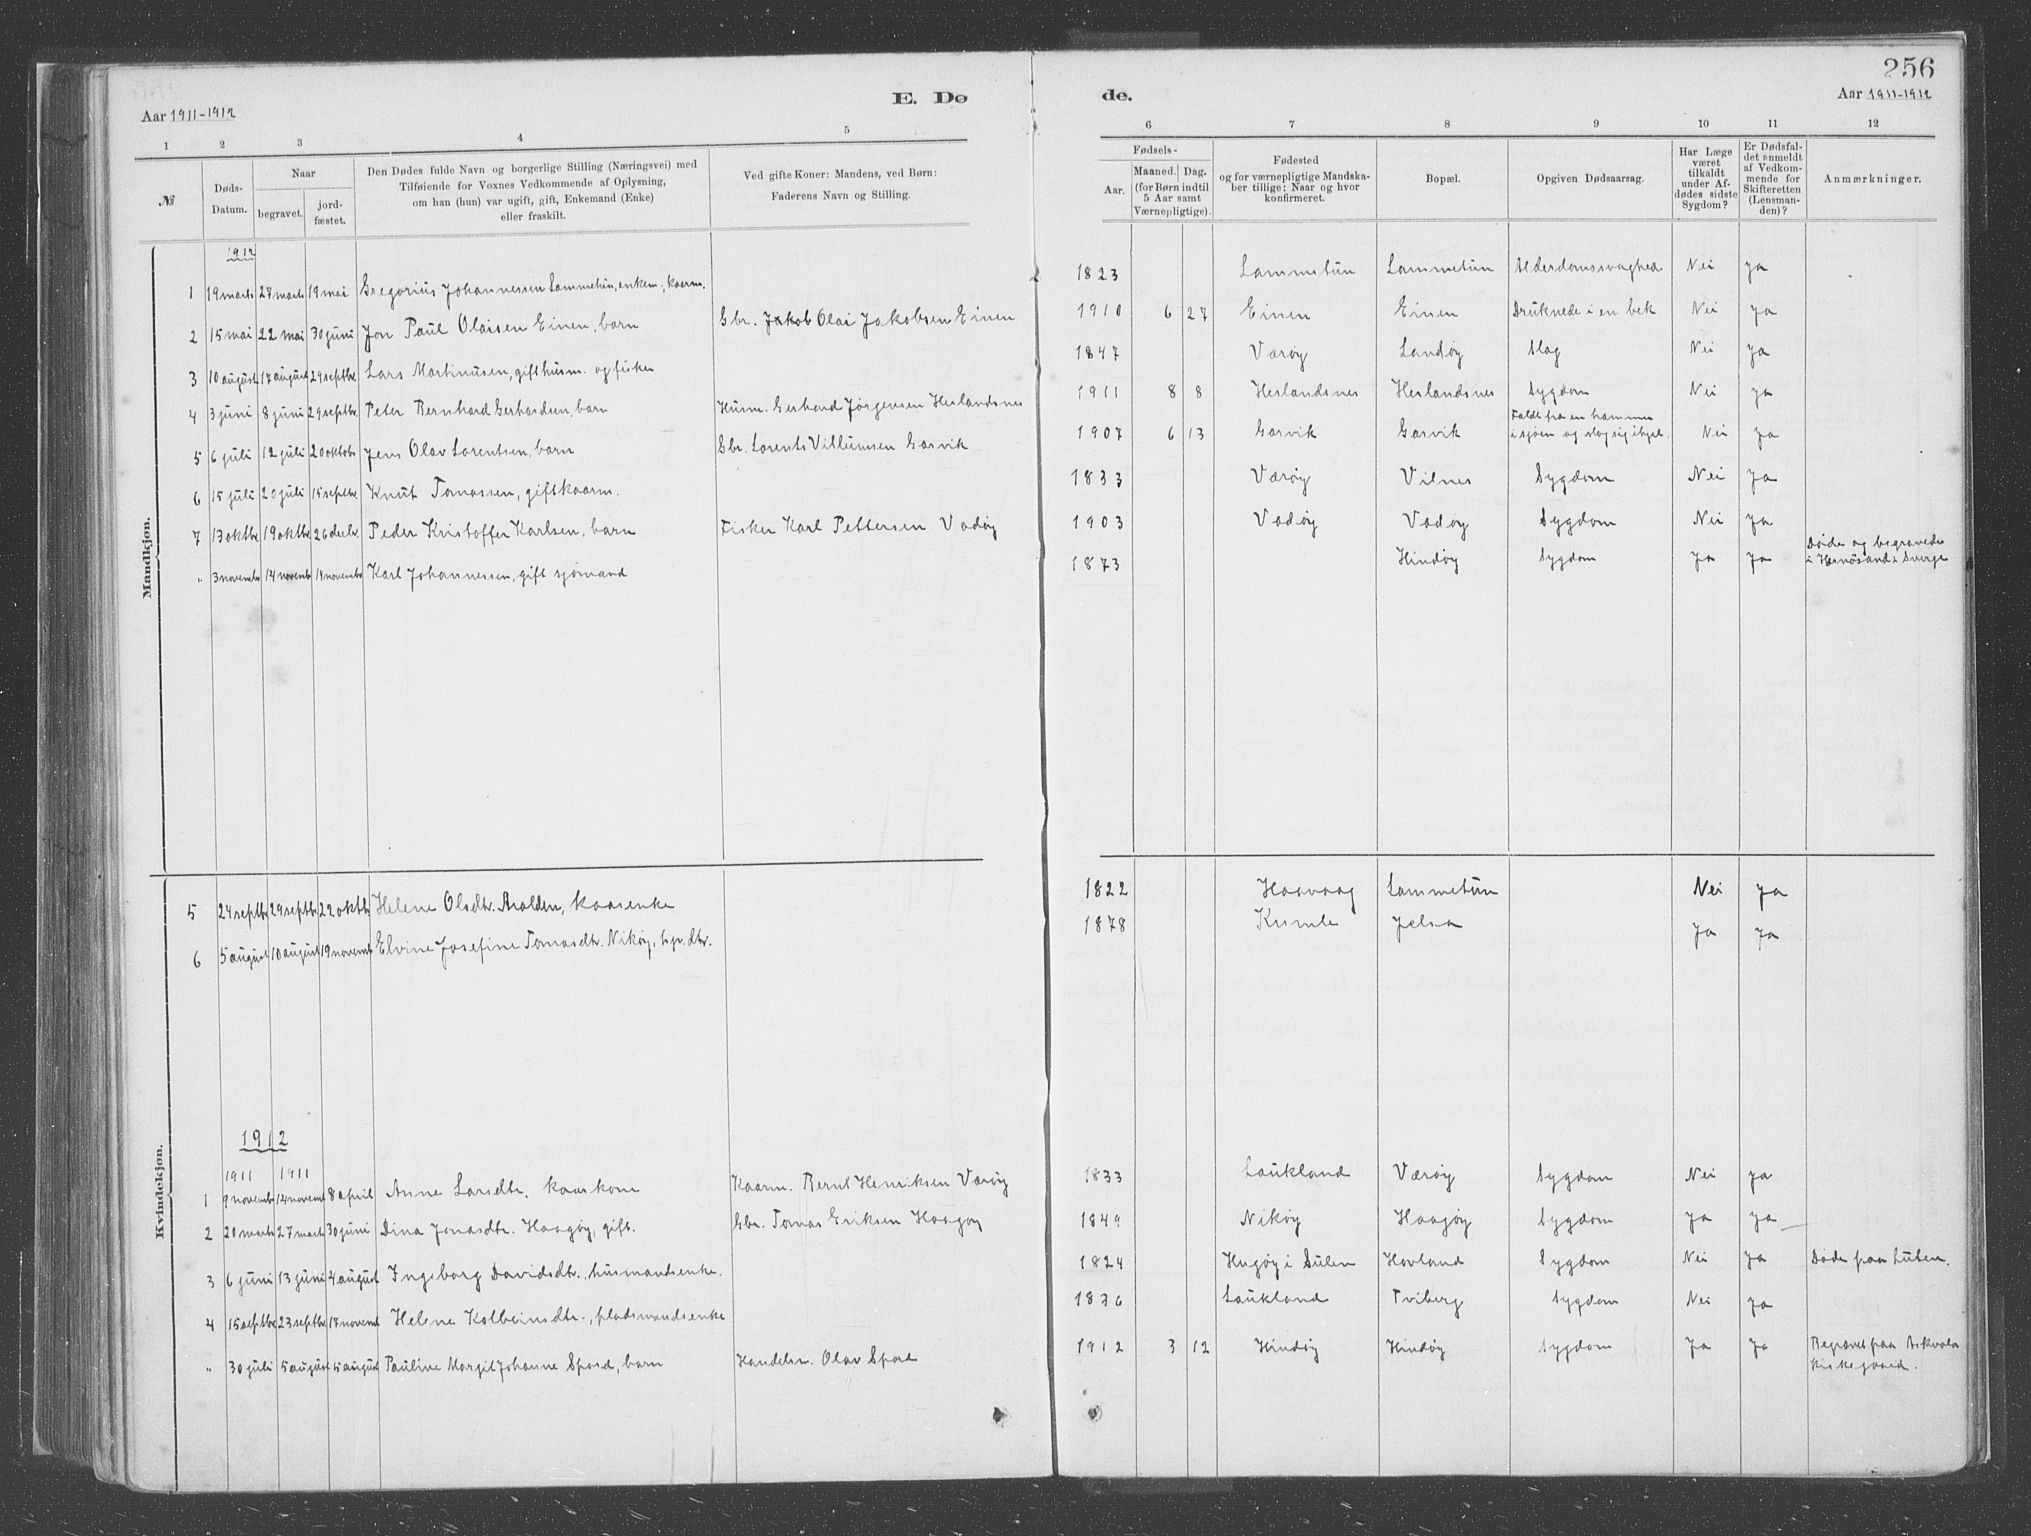 256
Aar 1911-1912
E. Dø
de.
Aar 1911-1912
1 2 3 4 5 6 7 8 9 10 11 12
№
Døds-Datum.
Naar
begravet.
jord-fæstet.
Den Dødes fulde Navn og borgerlige Stilling (Næringsvei) med
Tilføiende for Voxnes Vedkommende af Oplysning,
om han (hun) var ugift, gift, Enkemand (Enke)
eller fraskilt.
Ved gifte Koner: Mandens, ved Børn:
Faderens Navn og Stilling.
Fødsels-
Aar.
Maaned. Dag.
(for Børn indtil
5 Aar samt
Værnepligtige).
Fødested
og for værnepligtige Mandska-
ber tillige: Naar og hvor
konfirmeret.
Bopæl.
Opgiven Dødsaarsag.
Har Læge
været
tilkaldt
under Af-
dødes sidste
Sygdom?
Er Dødsfal-
det anmeldt
af Vedkom-
mende for
Skifteretten
(Lensman-
den)?
Anmærkninger.
Mandkjøn.
1912
1 19 marts 27 marts 19 mai Gregorius Johannessen Lammetun, enkem., kaarm. 1823 Lammetun Lammetun Alderdomssvaghed Nei ja
2 15 mai 22 mai 30 juni Jon Paul Olaisen Einen, barn Gbr. Jakob Olai Jakobsen Einen 1910 6 27 Einen Einen Druknede i en bek Nei ja
3 10 august 17 august 29 septbr Lars Martinusen, gift husm. og fisker 1847 Værøy Landøy Slag Nei ja
4 3 juni 8 juni 29 septbr Peter Bernhard Gerhardsen, barn Husm. Gerhard Jørgensen Heslandsnes 1911 8 8 Heslandsnes Heslandsnes Sygdom Nei ja
5 6 juli 12 juli 20 oktob Jens Olav Lorentsen, barn Gbr. Lorents Villumsen Gasvik 1907 6 13 Gasvik Gasvik Faldt fra en hammer
i sjøen og slog sig ihjel. Nei ja
6 15 juli 20 juli 15 septbr Knut Tomassen, gift kaarm. 1833 Værøy Vilnes Sygdom Nei ja
7 13 oktbr 19 oktbr 26 decbr. Peder Kristoffer Karlsen, barn Fisker Karl Pettersen Vadøy 1903 Vadøy Vadøy Sygdom Nei ja
" 3 novembr 14 novembr 14 novembr Karl Johannessen, gift sjømand 1873 Hindøy Sygdom ja ja Døde og begravedes
i Hernösand i Sverge
Kvindekjøn.
5 24 septbr 29 septbr 22 oktb Helene Olsdtr. Aralden, kaarenke 1822 Haavaag Lammetun Nei ja
6 5 august 10 august 19 novemb Elvine Josefine Tomasdtr. Nikøy, hpr. dtr. 1878 Krumle Jelsa ja ja
1912
1911 1911
1 9 novembr 14 novemb 8 april Anne Larsdtr. kaarkone Kaarm. Bernt Henriksen Værøy 1833 Laukland Værøy Sygdom Nei ja
2 20 marts 27 marts 30 juni Dina Jonasdtr. Haagøy, gift. Gbr. Tomas Eriksen Haagøy 1849 Nikøy Haagøy Sygdom ja ja
3 6 juni 13 juni 4 august Ingeborg Davidsdtr., husmandsenke. 1824 Hugøy i Sulen Hovland Sygdom Nei ja Døde paa Luten.
4 15 septbr 23 septbr 17 novemb Helene Kolbeinsdtr., pladsmandsenke 1836 Laukland Tviberg Sygdom Nei ja
" 30 juli 5 august 5 august Pauline Margit Johanne Spord, barn Handelsm. Olav Spord 1912 3 12 Hindøy Hindøy Sygdom ja ja Begravet paa Askvoln
kirkegaard.